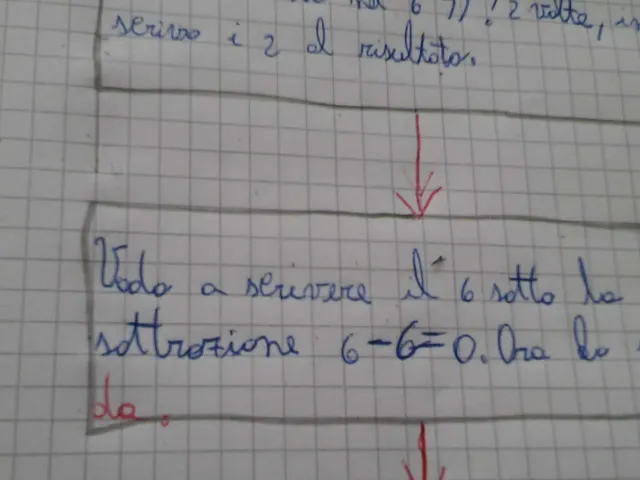 6 )) ! 2 volte, in
scrivo i 2 al risultato.
Vado a scrivere il 6 sotto la
sottrazione 6-6=0. Ora ho
da.